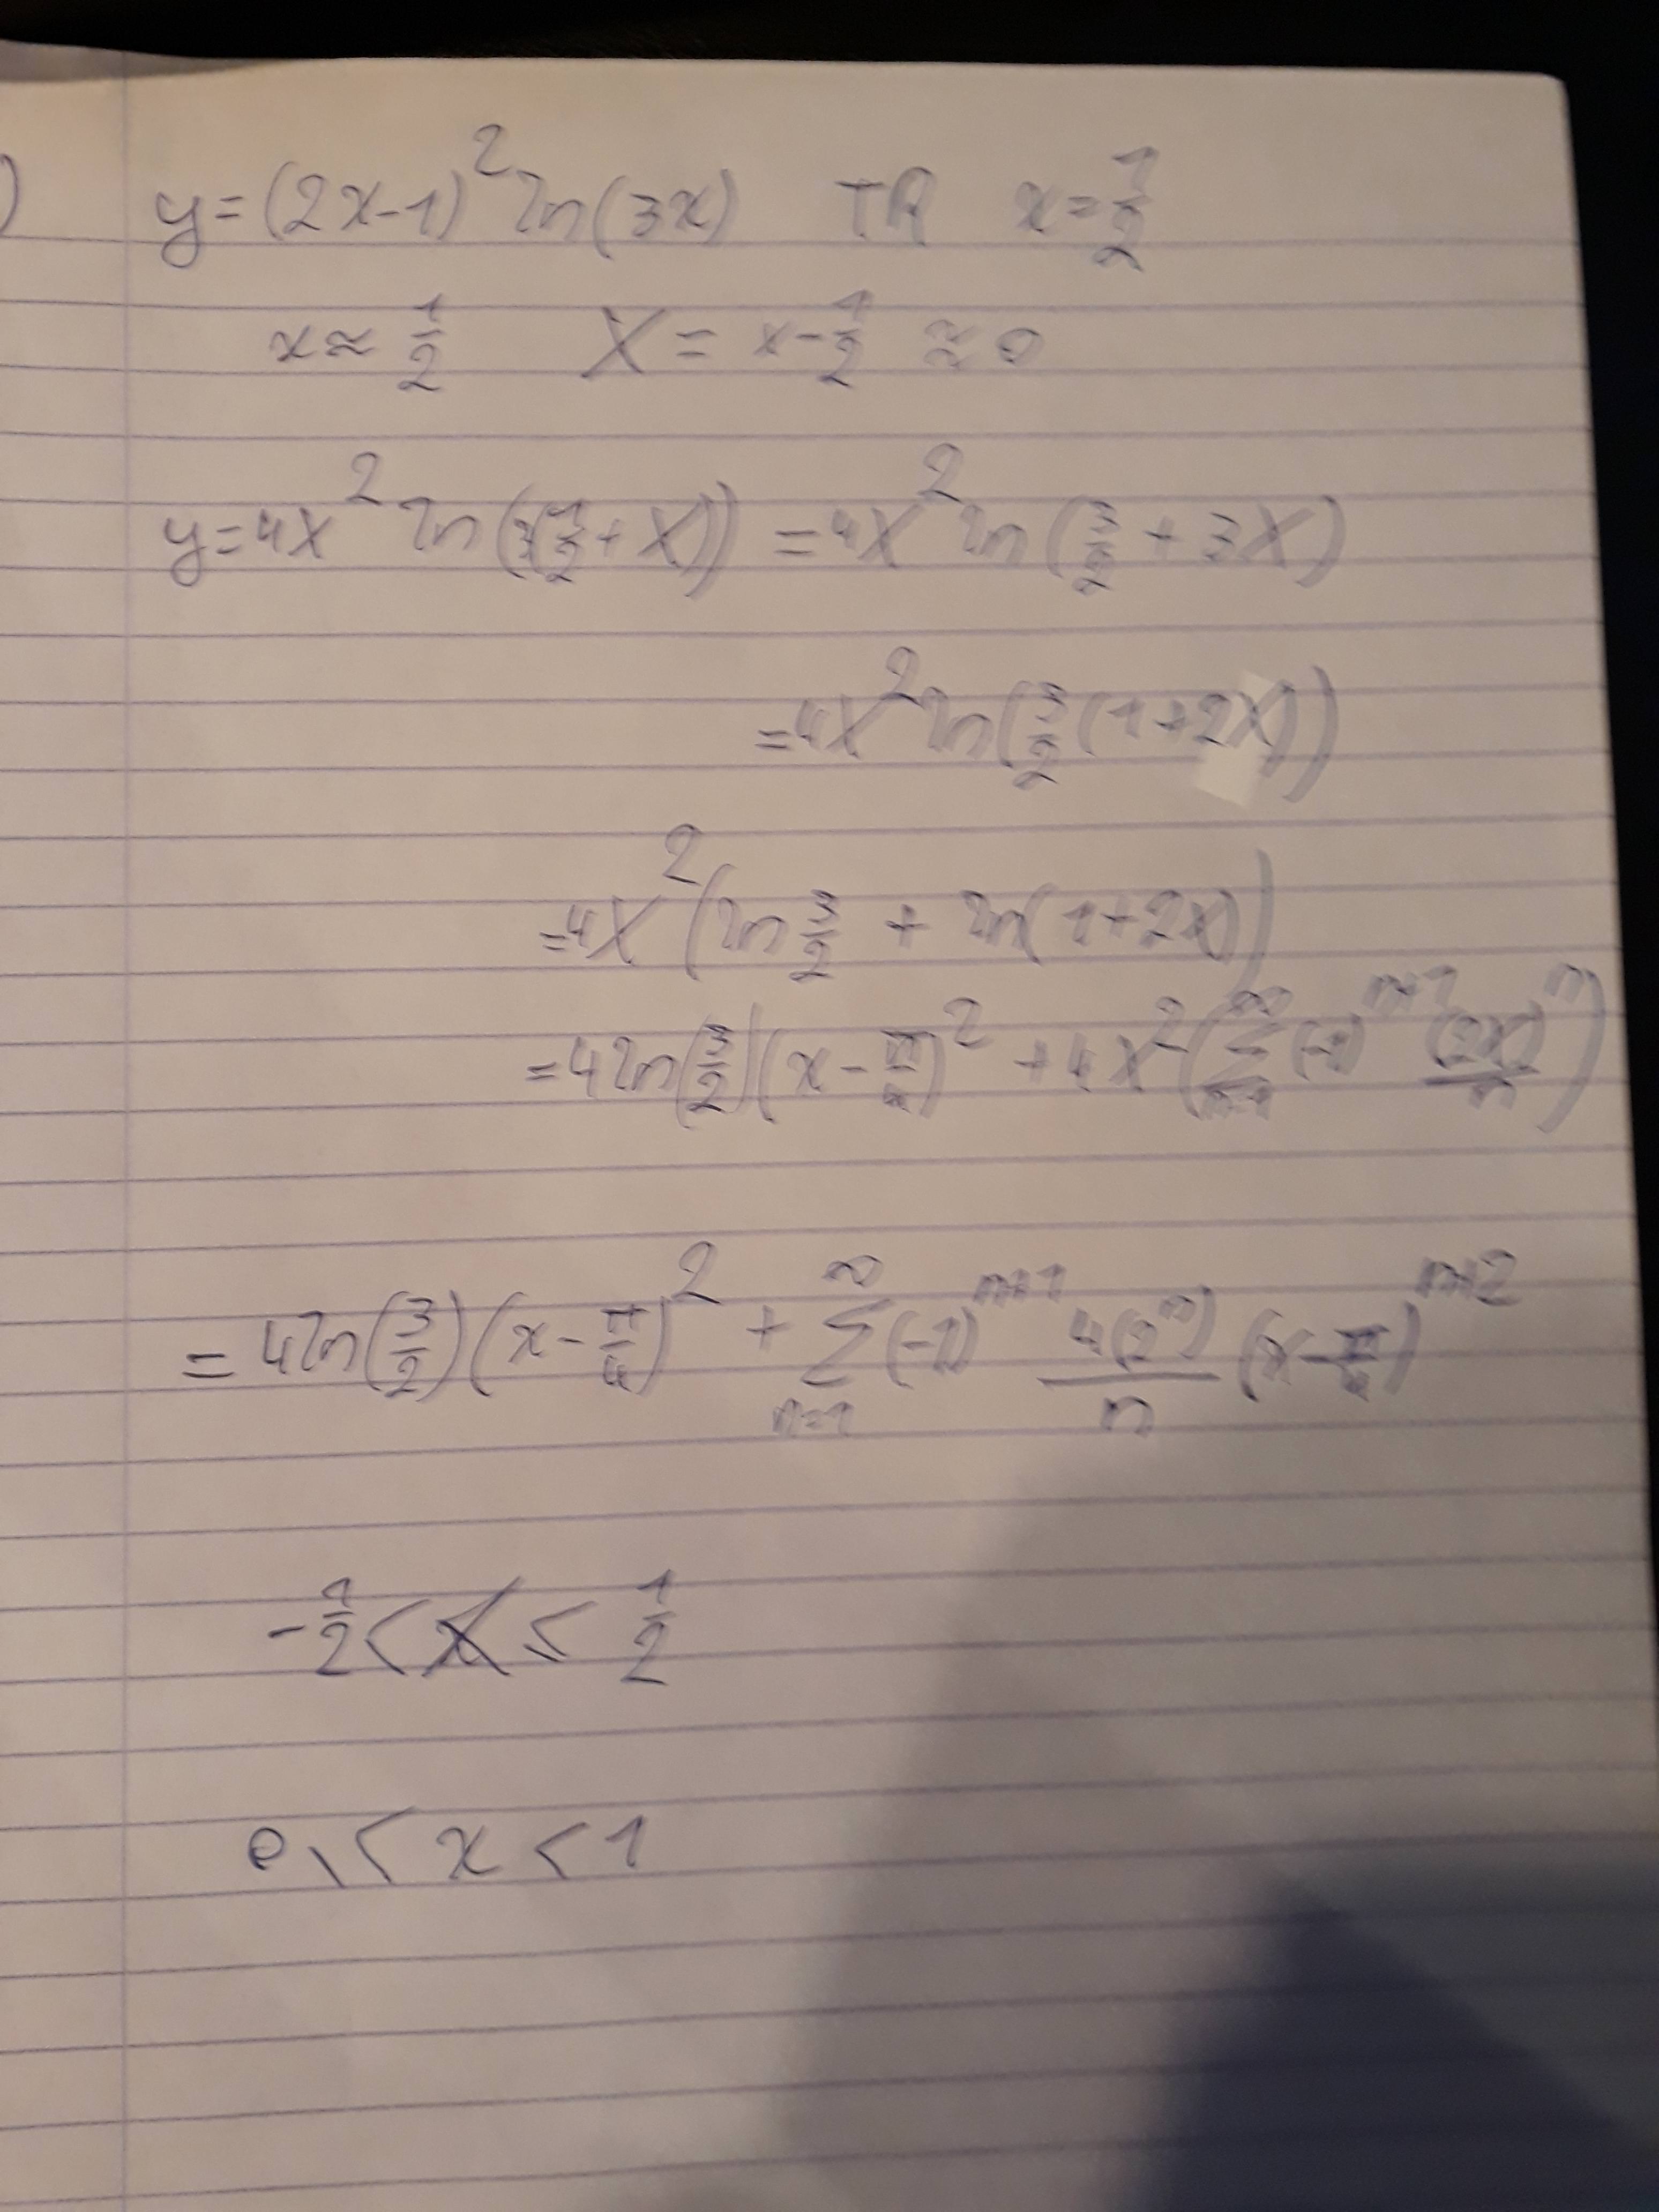 ) y=(2x-1)² ln(3x) TR x=1/2
x≈1/2 X = x-1/2 ≈0
y=4X² ln(3(1/2+X)) =4X² ln(3/2+3X)
=4X² ln(3/2(1+2X))
=4X²(ln 3/2 + ln(1+2X))
=4ln(3/2)(x-π/4)² +4X²(∑_{n=1}^{∞}(-1)^{n+1} (2X)^n/n)
=4ln(3/2)(x-π/4)² + ∑_{n=1}^{∞}(-1)^{n+1} 4(2^n)/n (x-π/4)^{n+2}
-1/2 < X ≤ 1/2
0 < x < 1